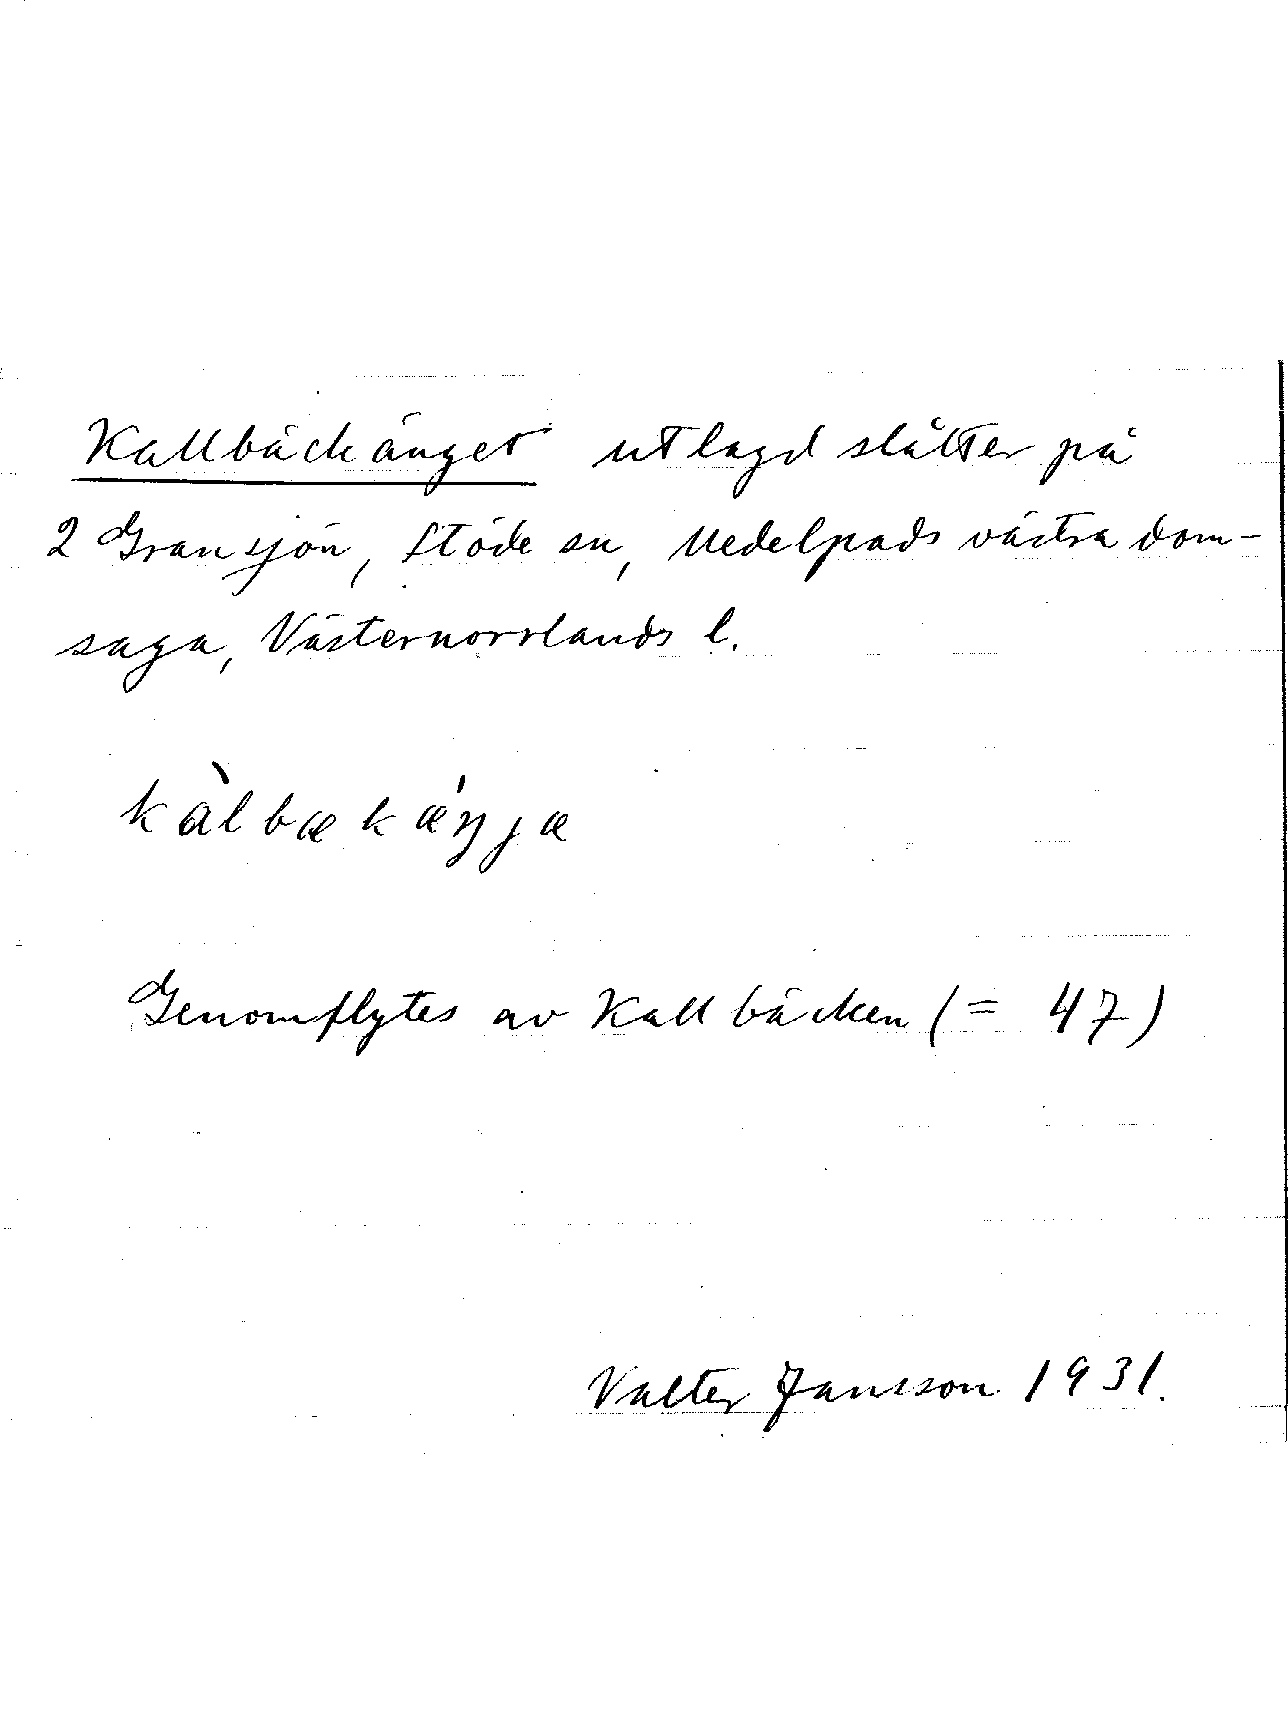 Kallbäckänget utlagd slåtter på
2 Gransjön, Stöde sn, Medelpads västra dom-
saga, Västernorrlands l.
kàlbækǽŋjæ
Genomflytes av Kallbäcken (= 47)
Valter Jansson 1931.